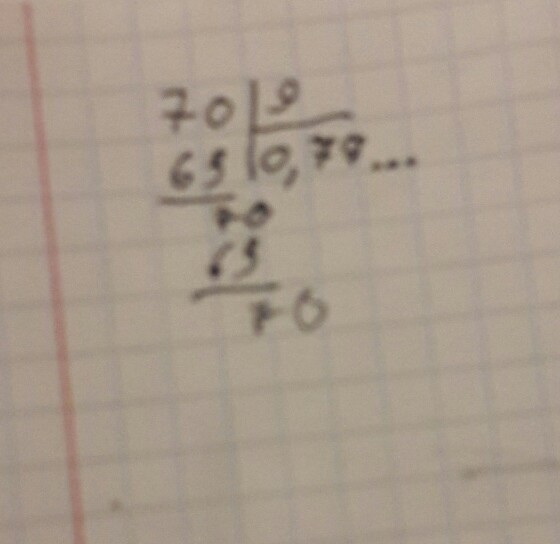 70 9
63 0,77...
70
63
70